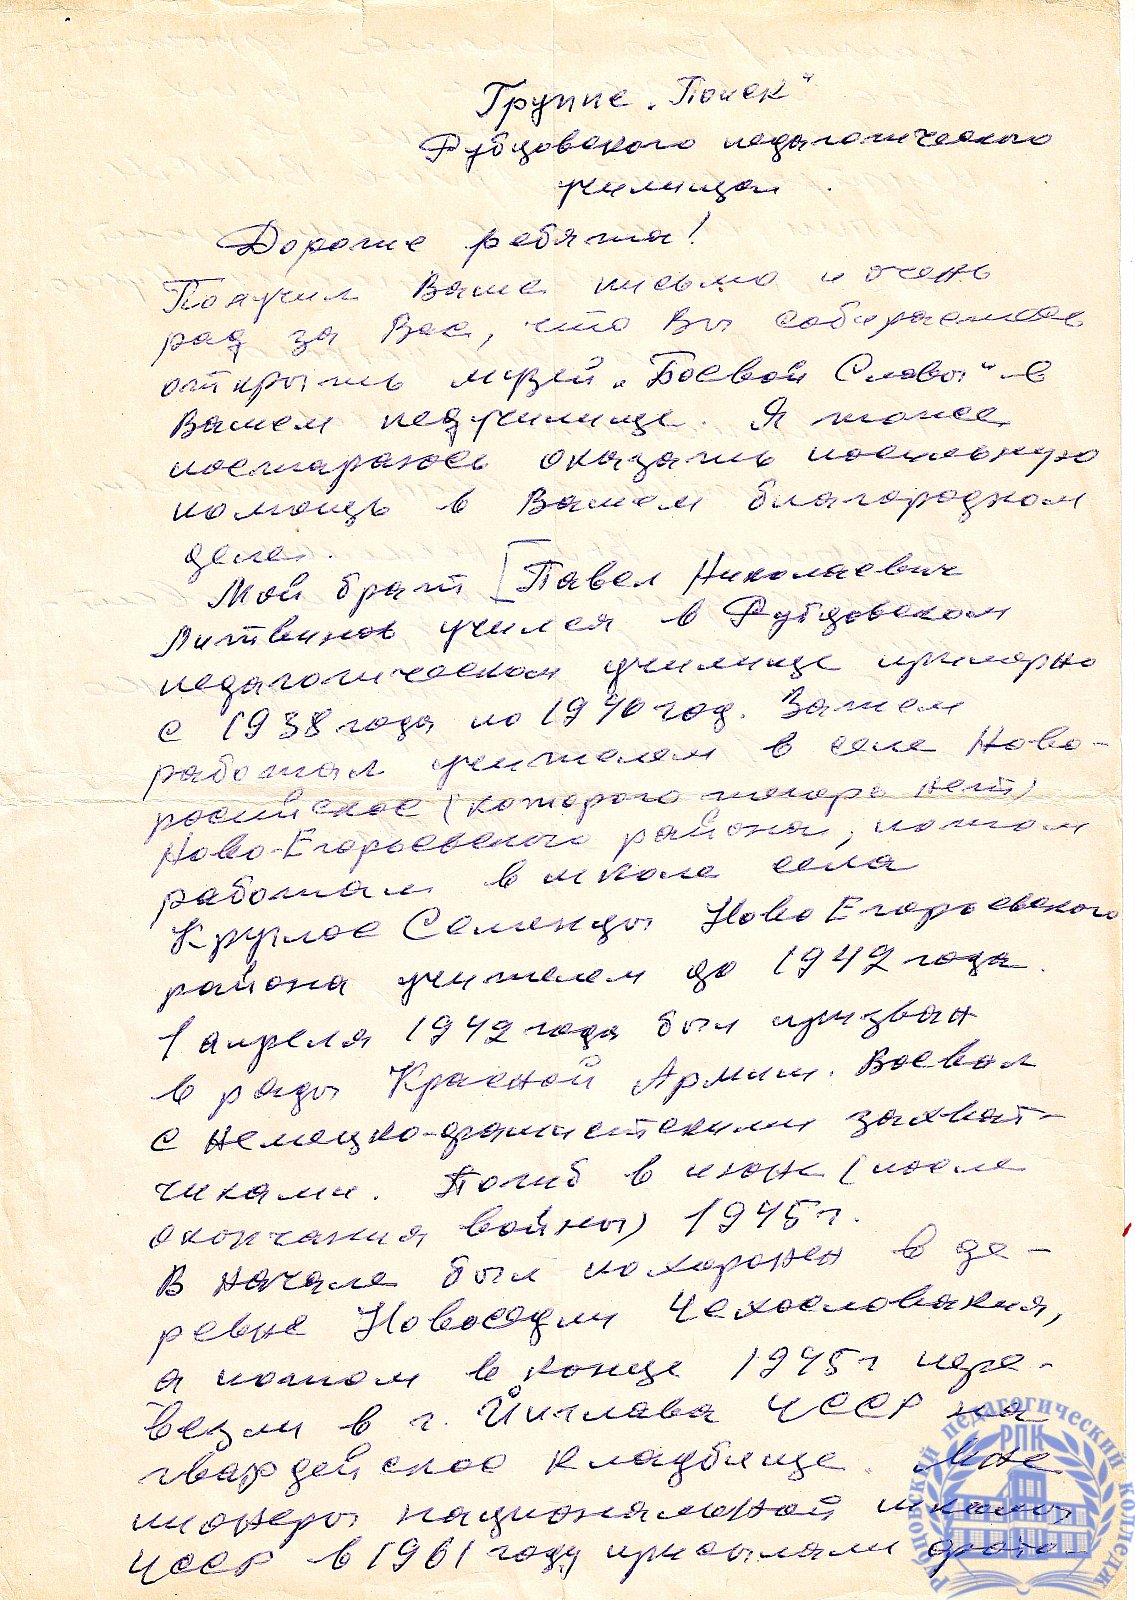 Группе „Поиск"
Рубцовского педагогического
училища.
Дорогие ребята!
Получил Ваше письмо и очень
рад за Вас, что Вы собираетесь
открыть музей „Боевой Славы" в
Вашем педучилище. Я тоже
постараюсь оказать посильную
помощь в Вашем благородном
деле.
Мой брат [Павел Николаевич
Литвинов учился в Рубцовском
педагогическом училище примерно
с 1938 года по 1940 год. Затем
работал учителем в селе Ново-
российское (которого теперь нет)
Ново-Егорьевского района, потом
работал в школе села
Круглое Семенцы Ново Егорьевского
района учителем до 1942 года.
1 апреля 1942 года был призван
в ряды Красной Армии. Воевал
с немецко-фашистскими захват-
чиками. Погиб в июне (после
окончания войны) 1945 г.
В начале был похоронен в де-
ревне Новоседли Чехословакия,
а потом в конце 1945 г пере-
везли в г. Йиглава ЧССР на
гвардейское кладбище. Мне
пионеры национальной школы
ЧССР в 1961 году присылали фото-
Рубцовский педагогический колледж
РПК